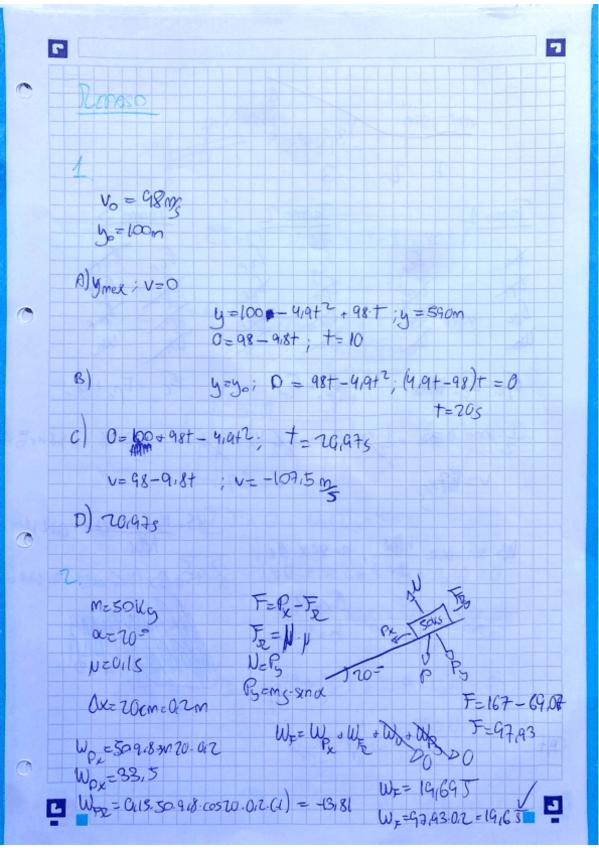 REPASO
1.
v₀ = 98 m/s
y₀ = 100m
A) y max; v=0
y = 100 - 4,9t² + 98t; y = 590m
0 = 98 - 9,8t; t = 10
B) y = y₀; 0 = 98t - 4,9t²; (4,9t - 98)t = 0
t = 20s
C) 0 = 100 + 98t - 4,9t²; t = 20,97s
v = 98 - 9,8t; v = -107,5 m/s
D) 20,97s
2.
m = 50Kg
α = 20º
μ = 0,15
Δx = 20cm = 0,2m
F = Px - FR
FR = N·μ
N = Py
Py = mg·senα
N
FR
50Kg
Px
20º
P
Py
F = 167 - 69,07
F = 97,93
WF = WPx + WFR + WN + WPy
0 0
WPx = 50·9,8·sen20·0,2
WPx = 33,5
WFR = 0,15·50·9,8·cos20·0,2·(-1) = -13,81
WF = 19,69J
WF = 97,93·0,2 = 19,6J